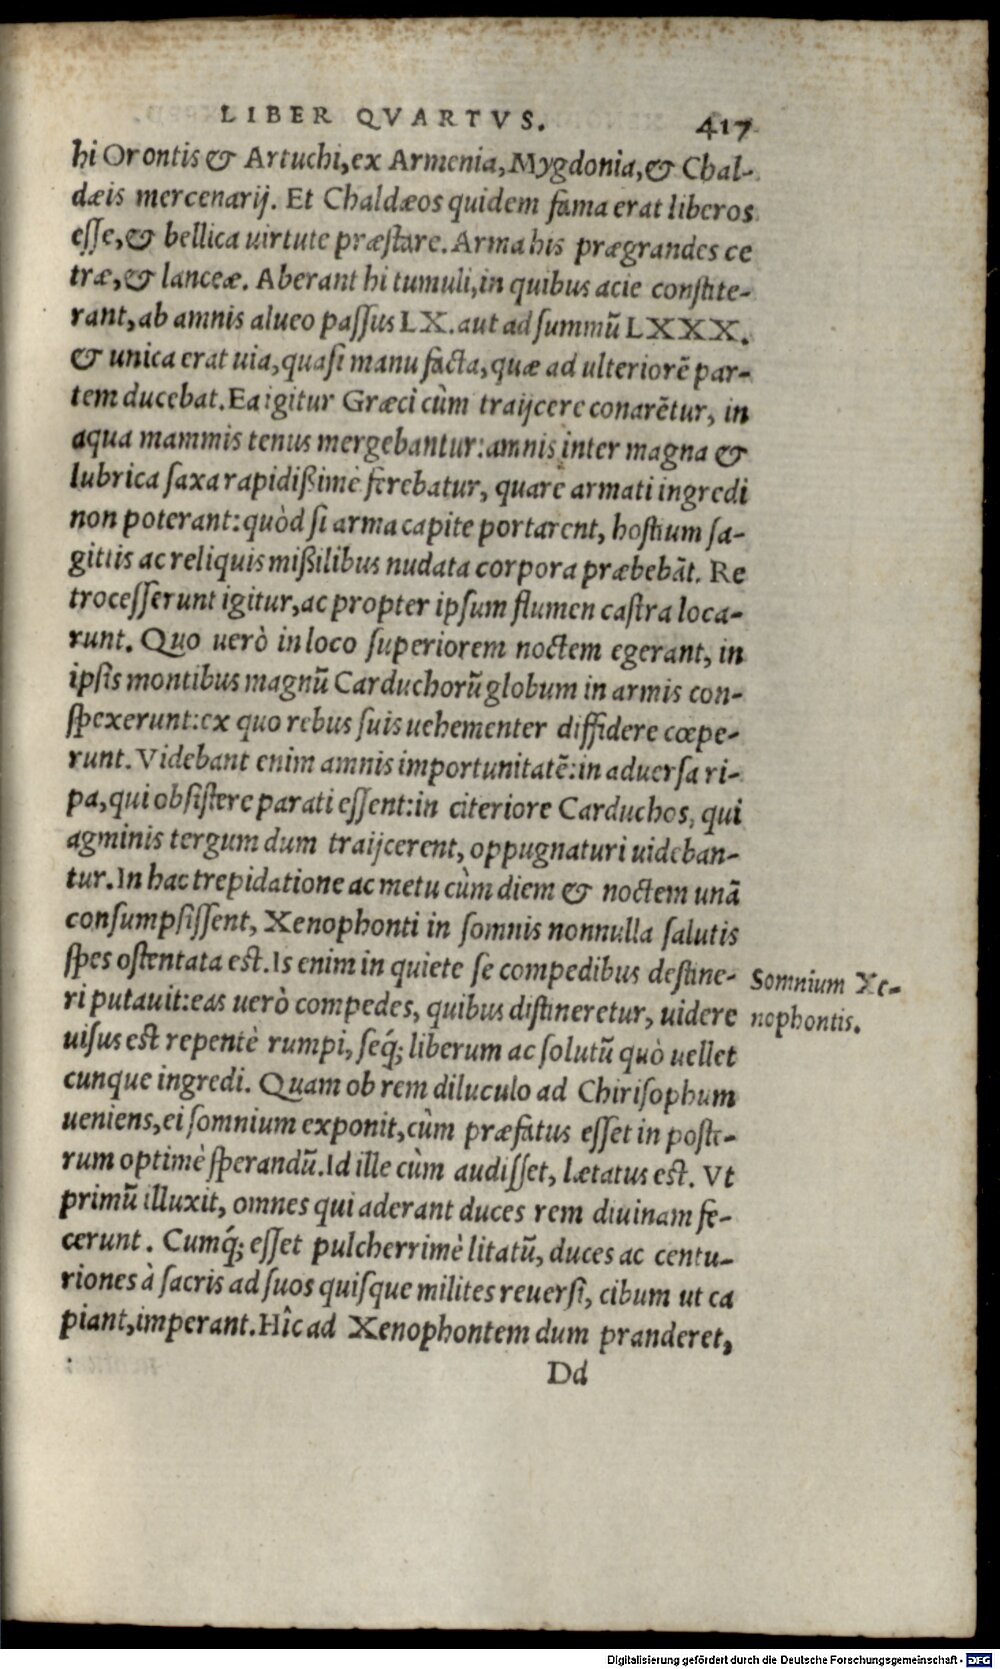 LIBER QVARTVS. 417
hi Orontis & Artuchi, ex Armenia, Mygdonia, & Chal-
dæis mercenarij. Et Chaldæos quidem fama erat liberos
esse, & bellica uirtute præstare. Arma his prægrandes ce
træ, & lanceæ. Aberant hi tumuli, in quibus acie constite-
rant, ab amnis alueo passus LX. aut ad summũ LXXX.
& unica erat uia, quasi manu facta, quæ ad ulteriorẽ par-
tem ducebat. Ea igitur Græci cùm traijcere conarẽtur, in
aqua mammis tenus mergebantur: amnis inter magna &
lubrica saxa rapidißimè ferebatur, quare armati ingredi
non poterant: quòd si arma capite portarent, hostium sa-
gittis ac reliquis mißilibus nudata corpora præbebãt. Re
trocesserunt igitur, ac propter ipsum flumen castra loca-
runt. Quo uerò in loco superiorem noctem egerant, in
ipsis montibus magnũ Carduchorũ globum in armis con-
spexerunt: ex quo rebus suis uehementer diffidere cœpe-
runt. Videbant enim amnis importunitatẽ: in aduersa ri-
pa, qui obsistere parati essent: in citeriore Carduchos, qui
agminis tergum dum traijcerent, oppugnaturi uideban-
tur. In hac trepidatione ac metu cùm diem & noctem unã
consumpsissent, Xenophonti in somnis nonnulla salutis
spes ostentata est. Is enim in quiete se compedibus destine-
Somnium Xe-
ri putauit: eas uerò compedes, quibus distineretur, uidere
nophontis.
uisus est repentè rumpi, seq́; liberum ac solutũ quò uellet
cunque ingredi. Quam ob rem diluculo ad Chirisophum
ueniens, ei somnium exponit, cùm præfatus esset in poste-
rum optimè sperandũ. Id ille cùm audisset, lætatus est. Vt
primũ illuxit, omnes qui aderant duces rem diuinam fe-
cerunt. Cumq́; esset pulcherrimè litatũ, duces ac centu-
riones à sacris ad suos quisque milites reuersi, cibum ut ca
piant, imperant. Hîc ad Xenophontem dum pranderet,
Dd
Digitalisierung gefördert durch die Deutsche Forschungsgemeinschaft - DFG